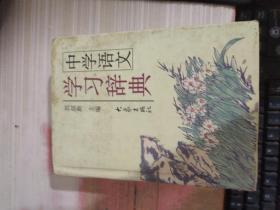 中学语文
学习辞典
主编
大众出版社